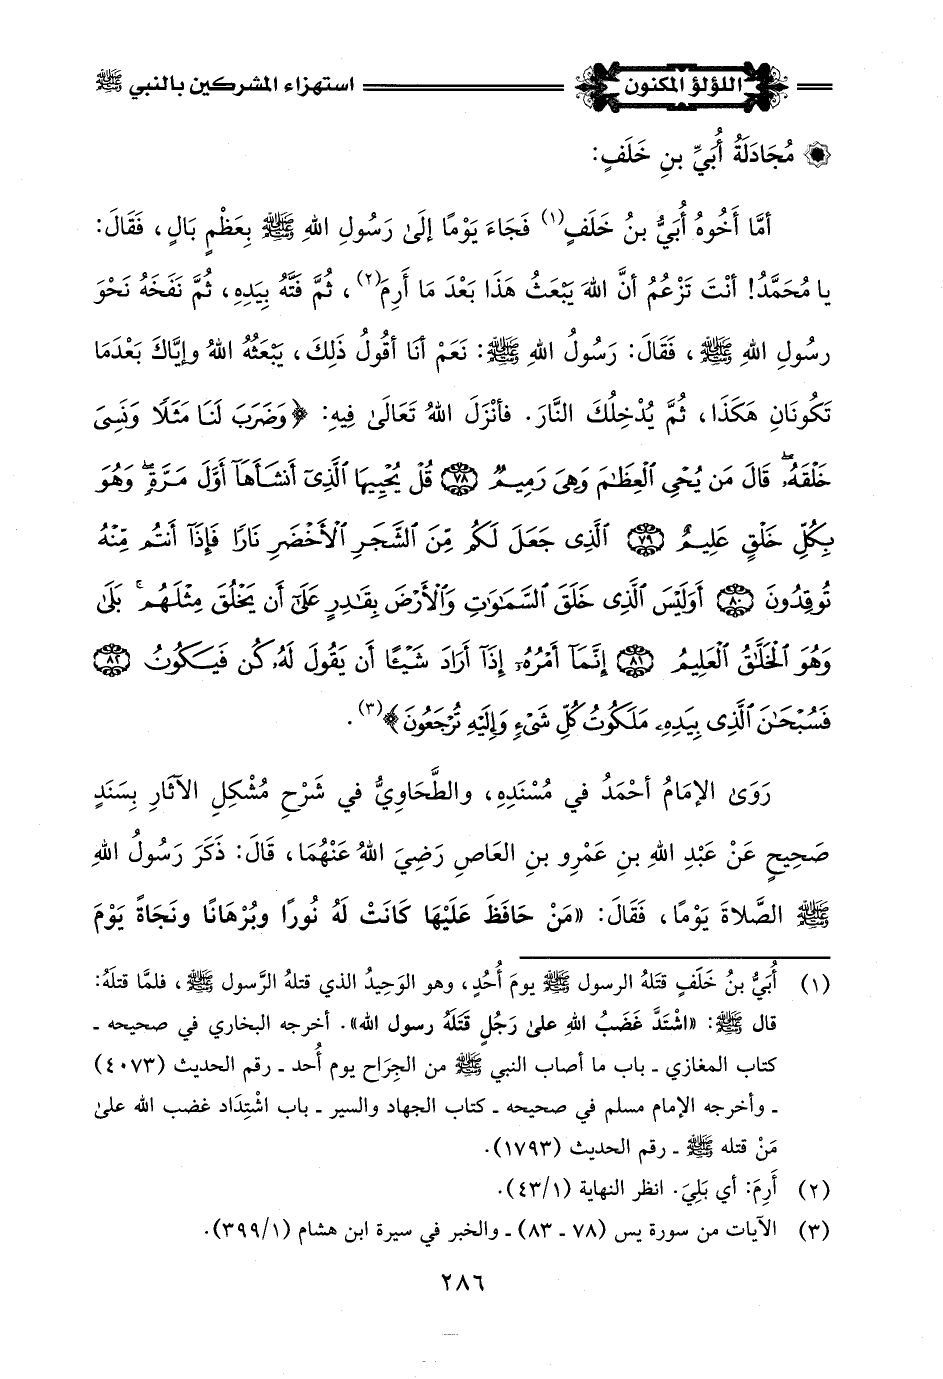 اللؤلؤ المكنون استهزاء المشركين بالنبي ﷺ
مُجَادَلَةُ أُبَيِّ بنِ خَلَفٍ:
أمَّا أَخُوهُ أُبَيُّ بنُ خَلَفٍ(١) فَجَاءَ يَوْمًا إلَىٰ رَسُولِ اللهِ ﷺ بِعَظْمٍ بَالٍ، فَقَالَ:
يا مُحَمَّدُ! أنْتَ تَزْعُمُ أنَّ اللهَ يَبْعَثُ هَذَا بَعْدَ مَا أَرِمَ(٢)، ثُمَّ فَتَّهُ بِيَدِهِ، ثُمَّ نَفَخَهُ نَحْوَ
رسُولِ اللهِ ﷺ، فَقَالَ: رَسُولُ اللهِ ﷺ: نَعَمْ أنَا أقُولُ ذَلِكَ، يَبْعَثُهُ اللهُ وإيَّاكَ بَعْدَمَا
تَكُونَانِ هَكَذَا، ثُمَّ يُدْخِلُكَ النَّارَ. فأنْزَلَ اللهُ تَعَالَىٰ فِيهِ: ﴿وَضَرَبَ لَنَا مَثَلًا وَنَسِىَ
خَلْقَهُۥۖ قَالَ مَن يُحْىِ ٱلْعِظَٰمَ وَهِىَ رَمِيمٌ ٧٨ قُلْ يُحْيِيهَا ٱلَّذِىٓ أَنشَأَهَآ أَوَّلَ مَرَّةٍۖ وَهُوَ
بِكُلِّ خَلْقٍ عَلِيمٌ ٧٩ ٱلَّذِى جَعَلَ لَكُم مِّنَ ٱلشَّجَرِ ٱلْأَخْضَرِ نَارًا فَإِذَآ أَنتُم مِّنْهُ
تُوقِدُونَ ٨٠ أَوَلَيْسَ ٱلَّذِى خَلَقَ ٱلسَّمَٰوَٰتِ وَٱلْأَرْضَ بِقَٰدِرٍ عَلَىٰٓ أَن يَخْلُقَ مِثْلَهُمۚ بَلَىٰ
وَهُوَ ٱلْخَلَّٰقُ ٱلْعَلِيمُ ٨١ إِنَّمَآ أَمْرُهُۥٓ إِذَآ أَرَادَ شَيْـًٔا أَن يَقُولَ لَهُۥ كُن فَيَكُونُ ٨٢
فَسُبْحَٰنَ ٱلَّذِى بِيَدِهِۦ مَلَكُوتُ كُلِّ شَىْءٍ وَإِلَيْهِ تُرْجَعُونَ﴾(٣).
رَوَىٰ الإمَامُ أحْمَدُ في مُسْنَدِهِ، والطَّحَاوِيُّ في شَرْحِ مُشْكِلِ الآثَارِ بِسَنَدٍ
صَحِيحٍ عَنْ عَبْدِ اللهِ بنِ عَمْرِو بنِ العَاصِ رَضِيَ اللهُ عَنْهُمَا، قَالَ: ذَكَرَ رَسُولُ اللهِ
ﷺ الصَّلاةَ يَوْمًا، فَقَالَ: «مَنْ حَافَظَ عَلَيْهَا كَانَتْ لَهُ نُورًا وبُرْهَانًا ونَجَاةً يَوْمَ
(١) أُبَيُّ بنُ خَلَفٍ قتلهُ الرسول ﷺ يومَ أُحُدٍ، وهو الوَحِيدُ الذي قتلهُ الرَّسول ﷺ، فلمَّا قتلَهُ:
قال ﷺ: «اشْتَدَّ غَضَبُ اللهِ علىٰ رَجُلٍ قَتَلَهُ رسول الله». أخرجه البخاري في صحيحه ـ
كتاب المغازي ـ باب ما أصاب النبي ﷺ من الجِرَاح يوم أُحد ـ رقم الحديث (٤٠٧٣)
ـ وأخرجه الإمام مسلم في صحيحه ـ كتاب الجهاد والسير ـ باب اشْتِدَاد غضب الله علىٰ
مَنْ قتله ﷺ ـ رقم الحديث (١٧٩٣).
(٢) أَرِمَ: أي بَلِيَ. انظر النهاية (٤٣/١).
(٣) الآيات من سورة يس (٧٨ ـ ٨٣) ـ والخبر في سيرة ابن هشام (٣٩٩/١).
٢٨٦